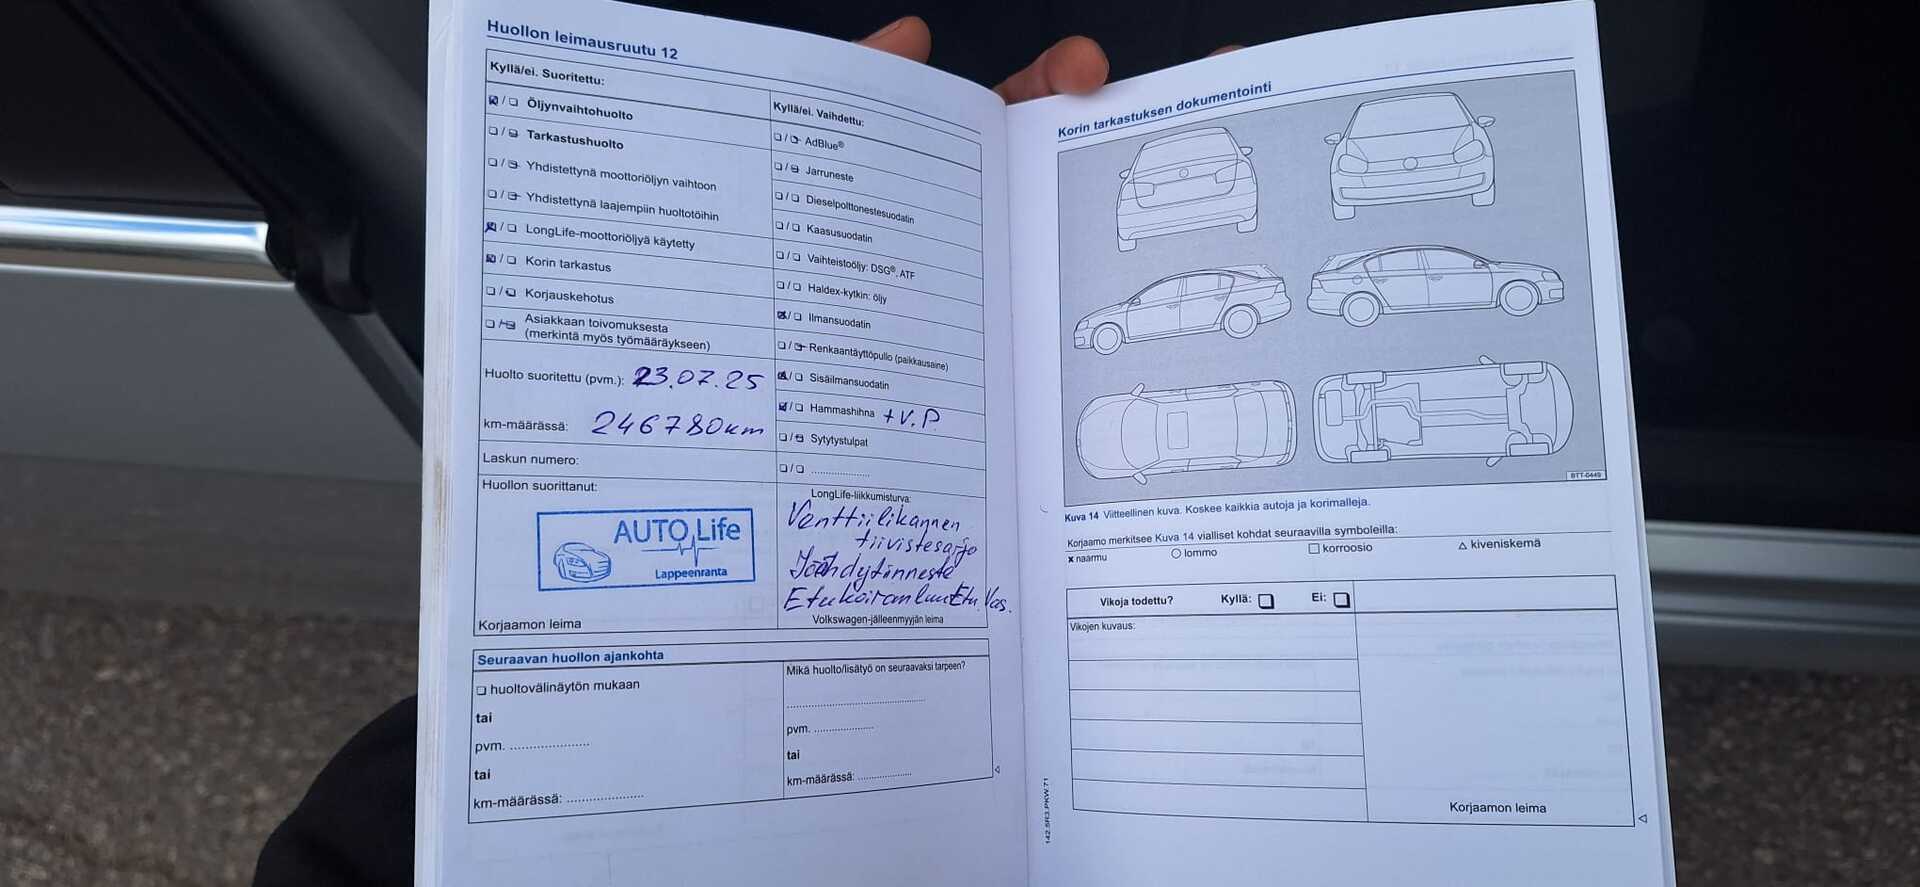 Huollon leimausruutu 12
Kyllä/ei. Suoritettu:
Öljynvaihtohuolto
Tarkastushuolto
Yhdistettynä moottoriöljyn vaihtoon
Yhdistettynä laajempiin huoltotöihin
LongLife-moottoriöljyä käytetty
Korin tarkastus
Korjauskehotus
Asiakkaan toivomuksesta
(merkintä myös työmääräykseen)
Huolto suoritettu (pvm.): 23.07.25
km-määrässä: 246780km
Laskun numero:
Huollon suorittanut:
AUTO Life
Lappeenranta
Korjaamon leima
Kyllä/ei. Vaihdettu:
AdBlue®
Jarruneste
Dieselpolttonestesuodatin
Kaasusuodatin
Vaihteistoöljy: DSG®, ATF
Haldex-kytkin: öljy
Ilmansuodatin
Renkaantäyttöpullo (paikkausaine)
Sisäilmansuodatin
Hammashihna + V.P.
Sytytystulpat
....................
LongLife-liikkumisturva:
Venttiilikannen
tiivistesarja
Jäähdytinneste
Etu. Vas.
Volkswagen-jälleenmyyjän leima
Seuraavan huollon ajankohta
huoltovälinäytön mukaan
tai
pvm. ......................
tai
km-määrässä: .....................
Mikä huolto/lisätyö on seuraavaksi tarpeen?
........................................
pvm. .................
tai
km-määrässä: ...............
Korin tarkastuksen dokumentointi
BTT-0449
Kuva 14 Viitteellinen kuva. Koskee kaikkia autoja ja korimalleja.
Korjaamo merkitsee Kuva 14 vialliset kohdat seuraavilla symboleilla:
x naarmu lommo korroosio kiveniskemä
Vikoja todettu? Kyllä: Ei:
Vikojen kuvaus:
Korjaamon leima
142.5R3.PKW.71